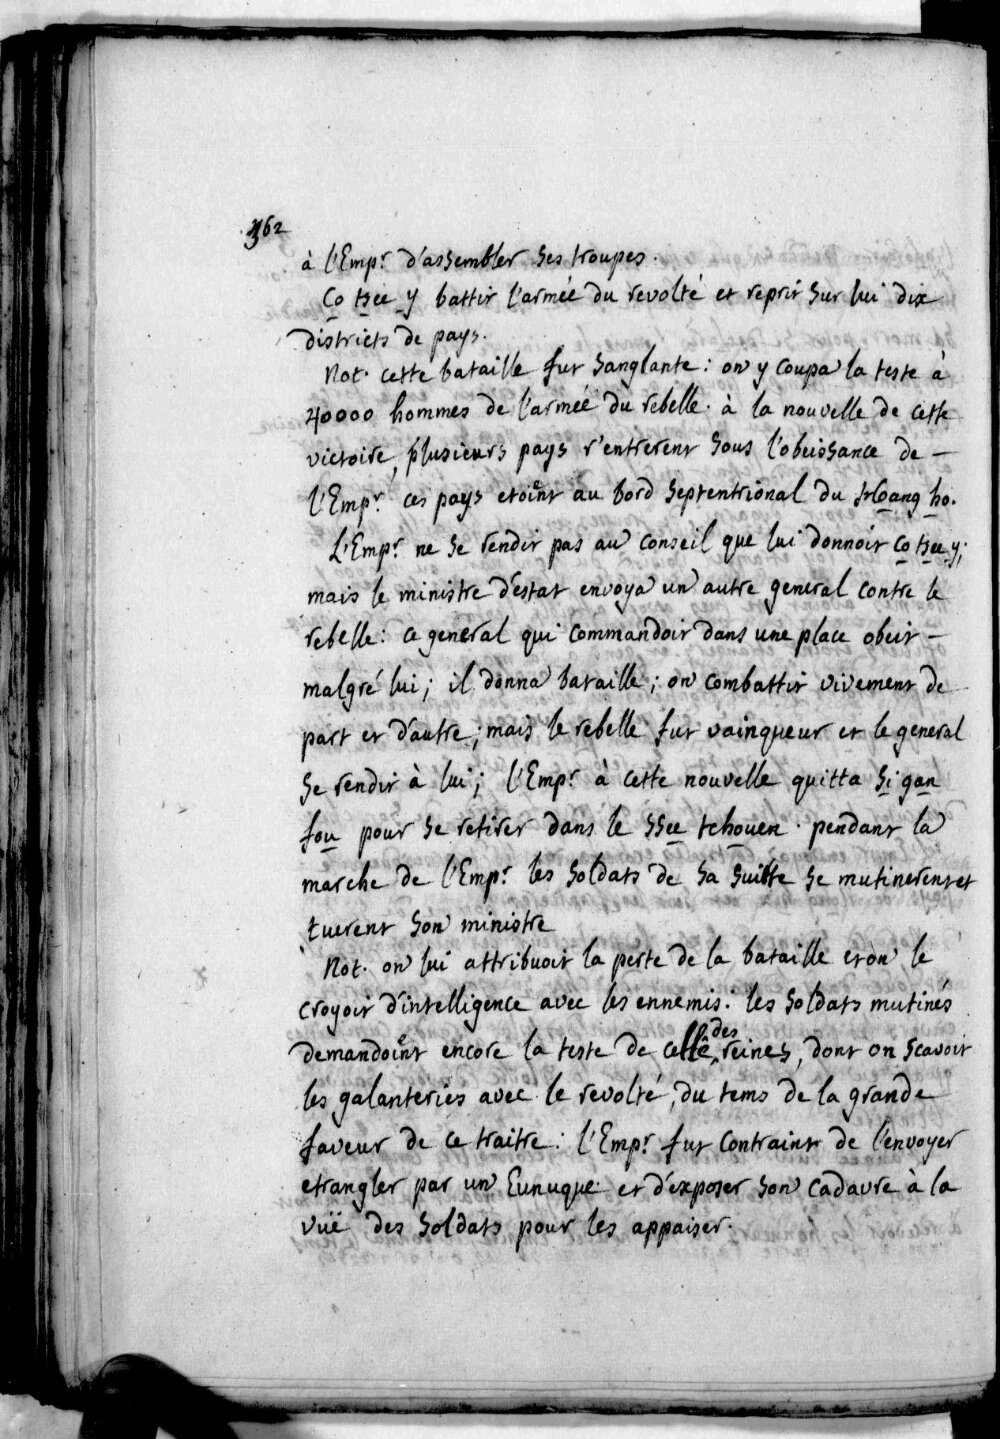 362
à l'Emp.r d'assembler ses troupes.
Co tsee y battit l'armée du revolté et reprit sur lui dix
districts de pays.
Not. cette bataille fut sanglante : on y coupa la teste à
40000 hommes de l'armée du rebelle. à la nouvelle de cette
victoire, plusieurs pays r'entrerent sous l'obeissance de —
l'Emp.r ces pays etoint au bord septentrional du Hoang ho.
L'Emp.r ne se rendit pas au conseil que lui donnoit Co tsee y;
mais le ministre d'estat envoya un autre general contre le
rebelle : ce general qui commandoit dans une place obeit —
malgré lui; il donna bataille; on combattit vivement de
part et d'autre; mais le rebelle fut vainqueur et le general
se rendit à lui; l'Emp.r à cette nouvelle quitta si gan
fou pour se retirer dans le ssee tchouen. pendant la
marche de l'Emp.r les soldats de sa suitte se mutinerent et
tuerent son ministre
Not. on lui attribuoit la perte de la bataille et on le
croyoit d'intelligence avec les ennemis : les soldats mutinés
demandoint encore la teste de celle des reines, dont on scavoit
les galanteries avec le revolté, du tems de la grande
faveur de ce traitre : l'Emp.r fut contraint de l'envoyer
etrangler par un Eunuque et d'exposer son cadavre à la
vuë des soldats pour les appaiser.